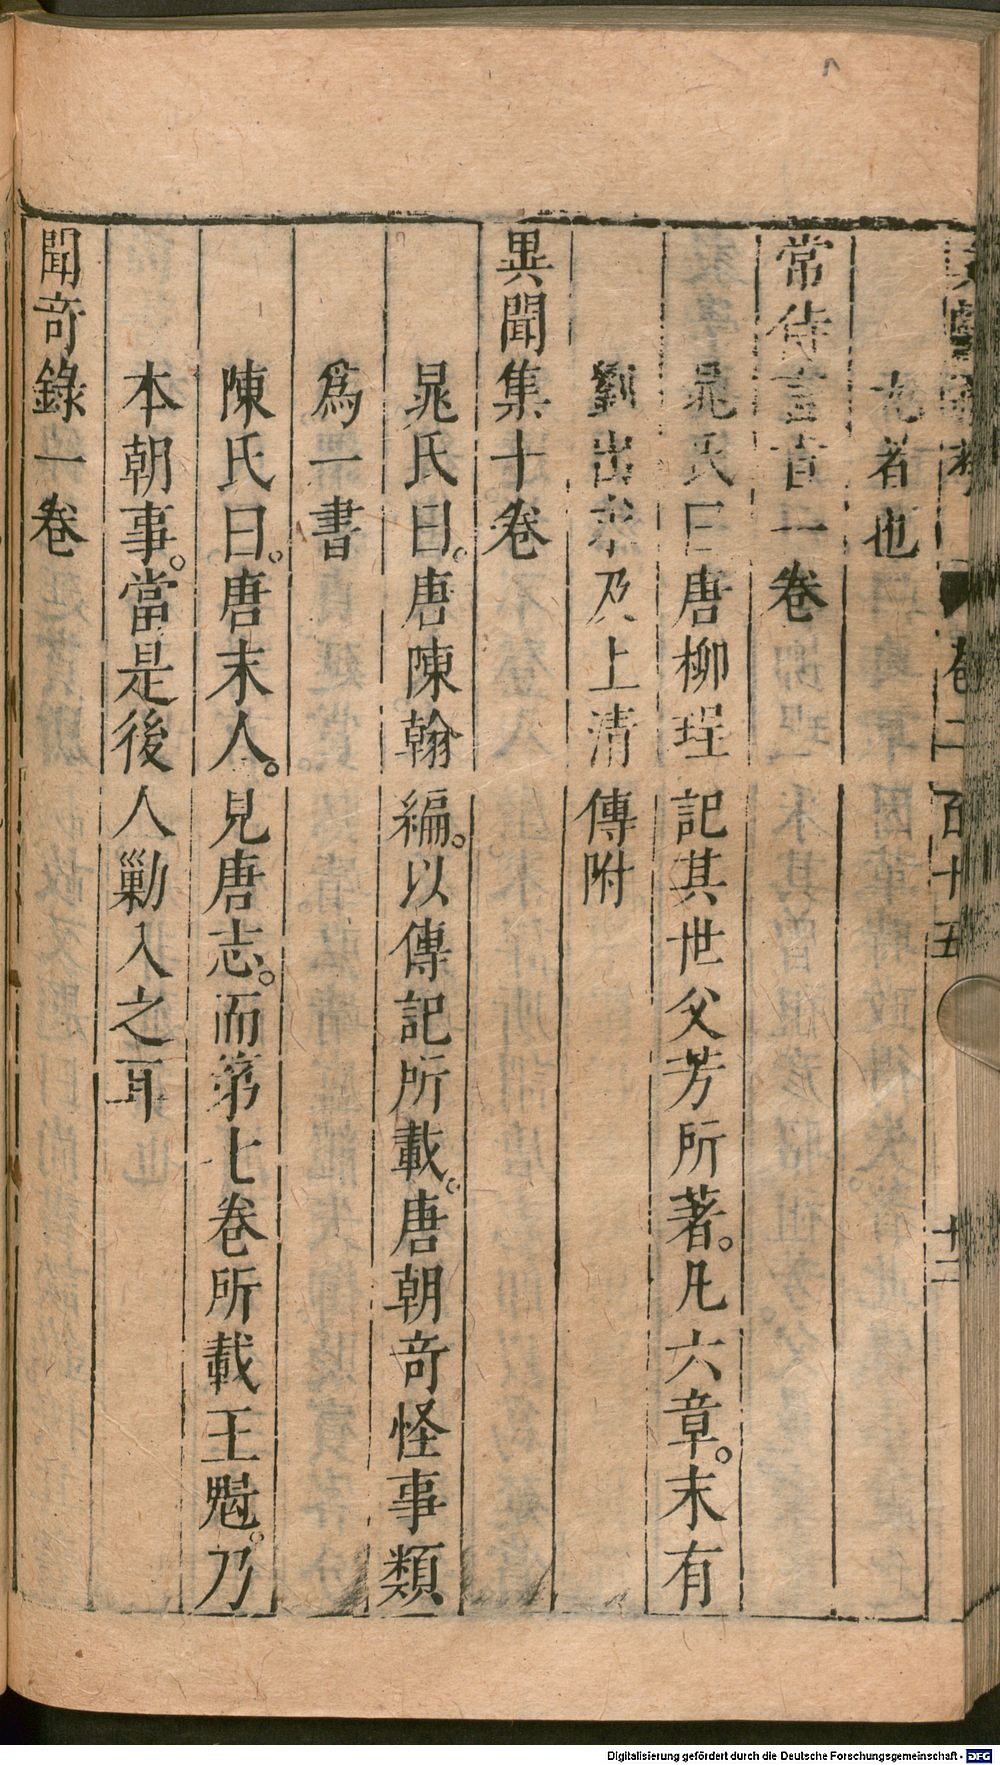 文獻通考 卷二百十五 十二
九者也
常侍言旨一卷
晁氏曰唐柳珵記其世父芳所著。凡六章。末有
劉幽求及上清傳附
異聞集十卷
晁氏曰。唐陳翰編。以傳記所載。唐朝奇怪事類
爲一書
陳氏曰。唐末人。見唐志。而第七卷所載王魁。乃
本朝事。當是後人勦入之耳
聞奇錄一卷
Digitalisierung gefördert durch die Deutsche Forschungsgemeinschaft - DFG